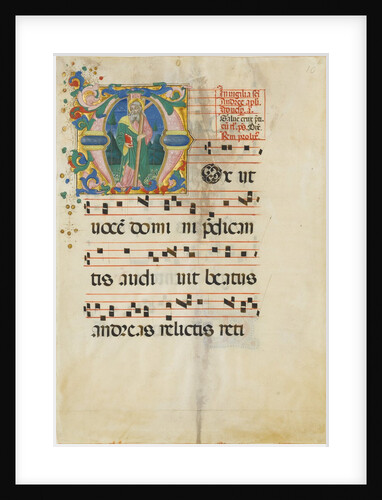 In vigilia sci
andree apli
ad vesp. a.
Salve crux p̄
cū rl. ps. Dix̄
Rem prolix̄
ox ut
vocē domi ni p̄dican
tis audi vit beatus
andreas relictis reti